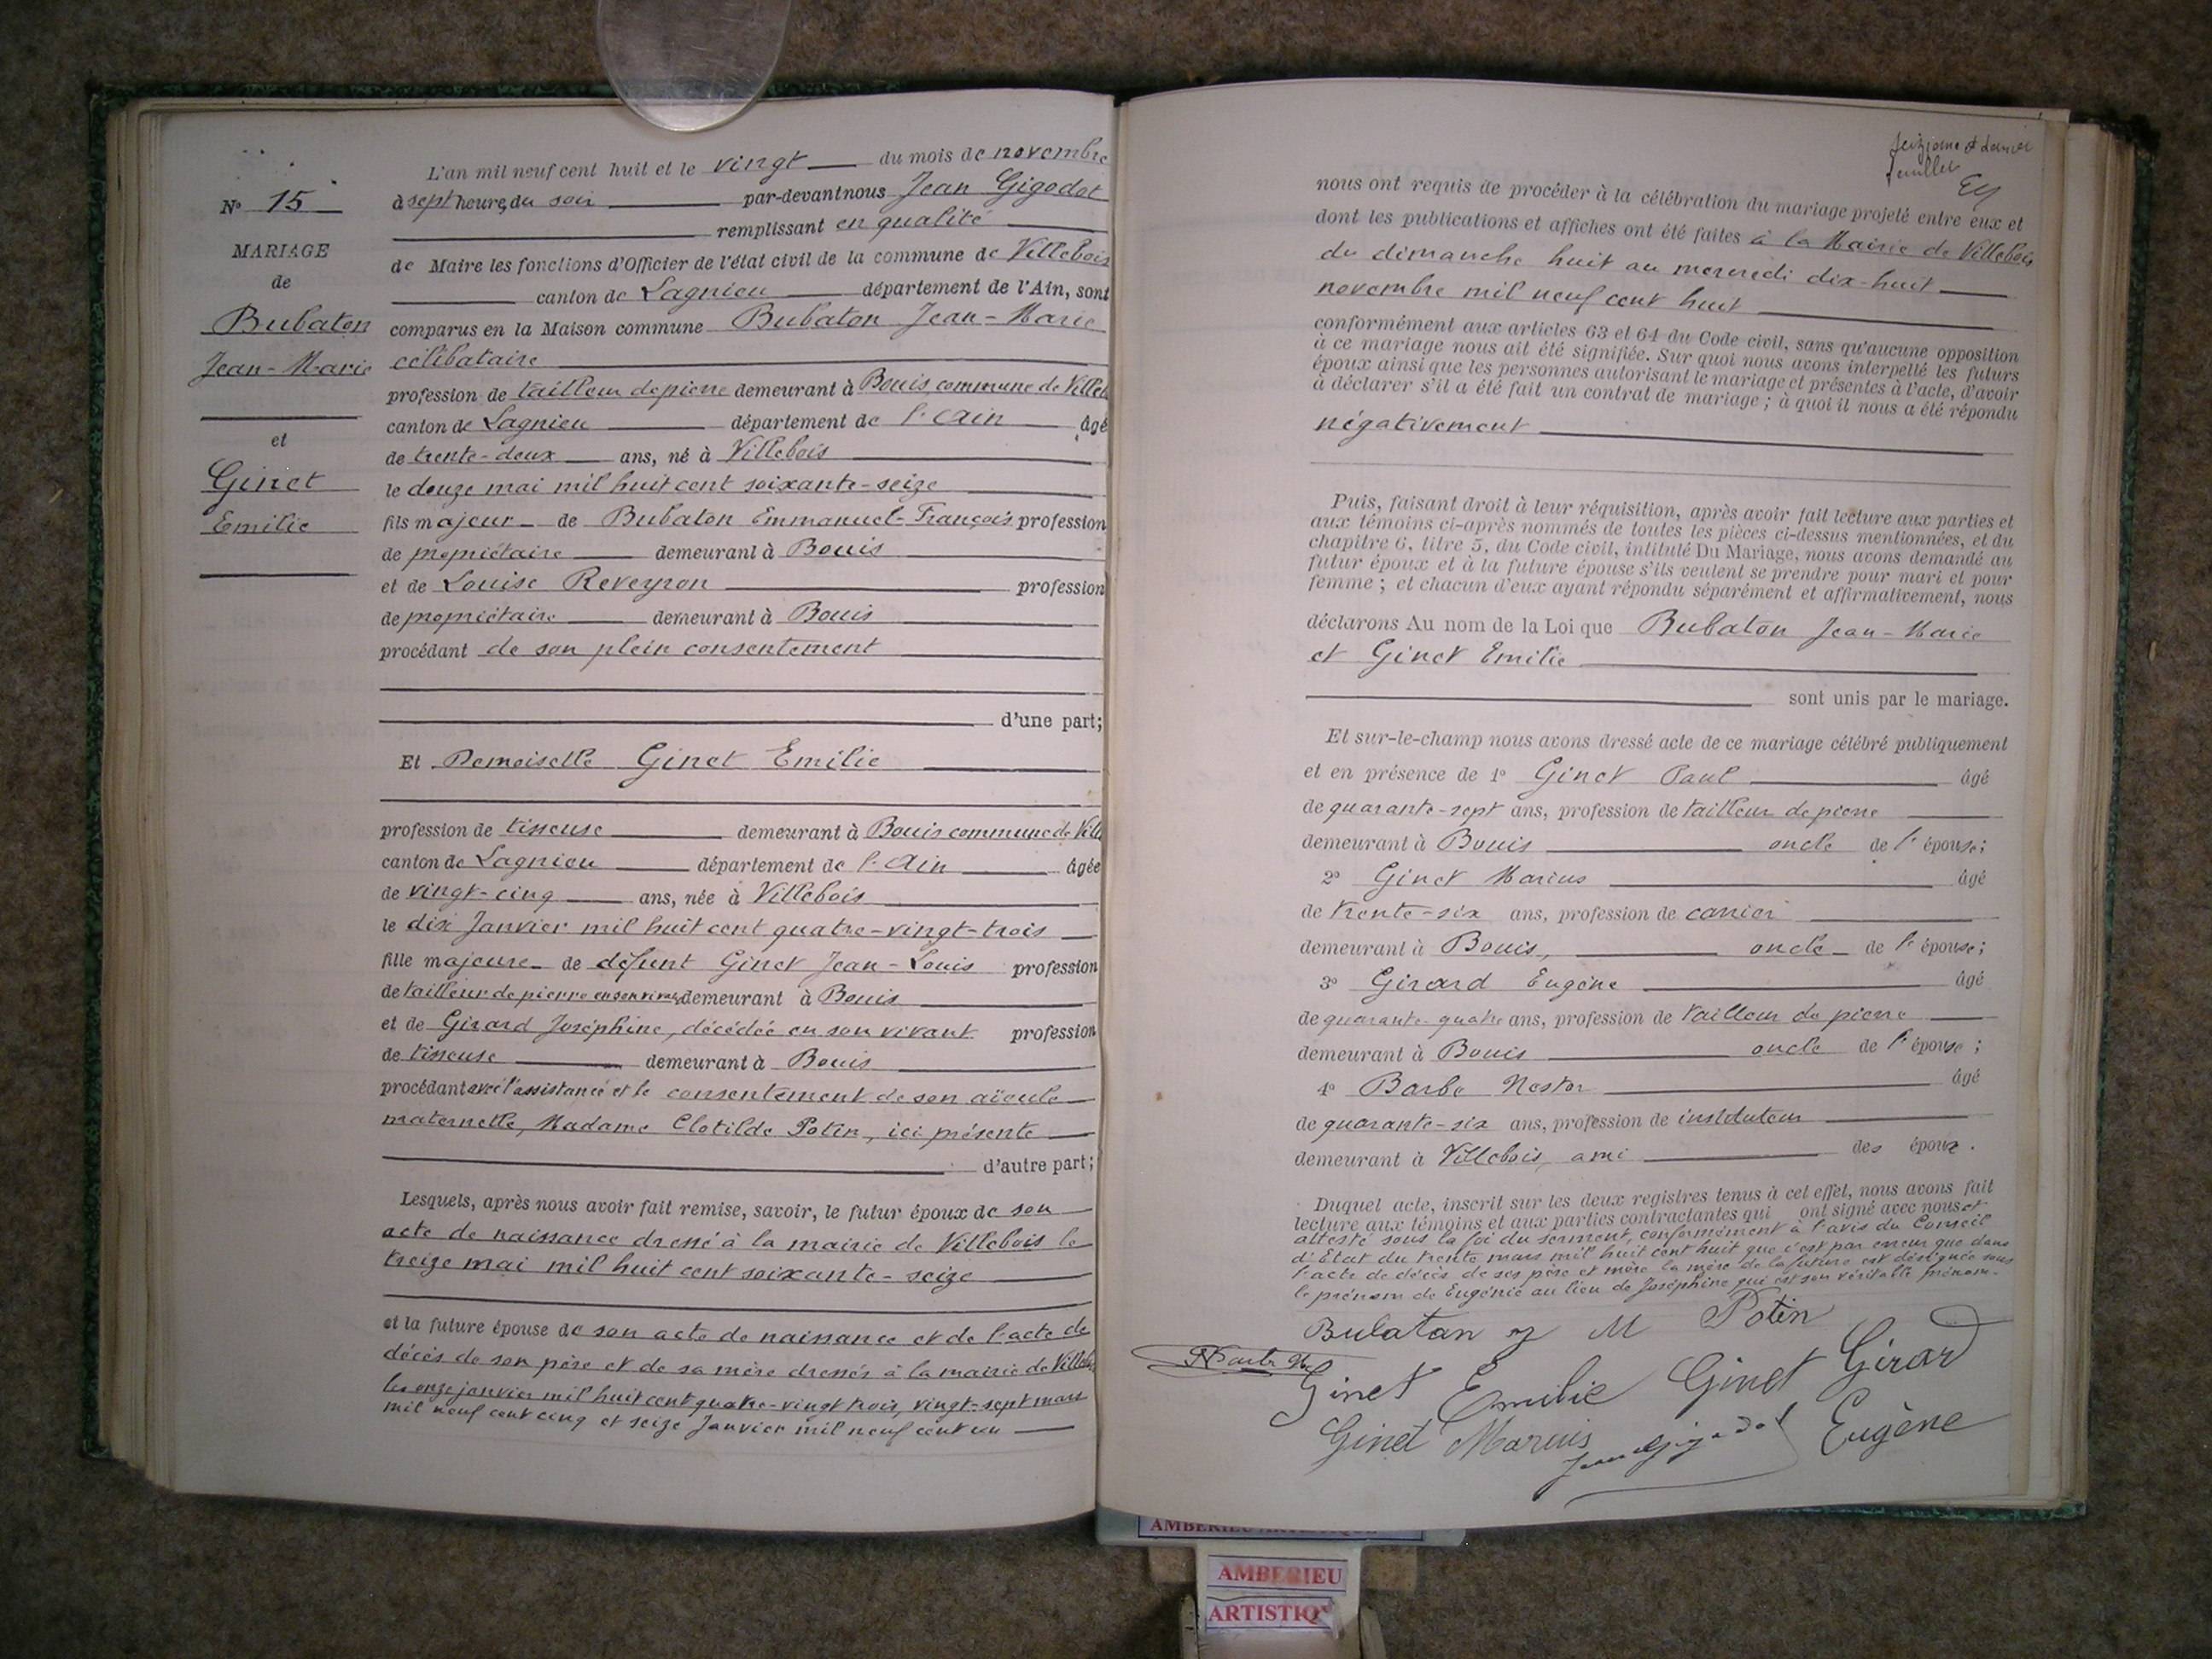 N° 15
MARIAGE
de
Bubaton
Jean-Marie
et
Ginet
Emilie
L'an mil neuf cent huit et le vingt du mois de novembre
à sept heures du soir par-devant nous Jean Gigodot
remplissant en qualité
de Maire les fonctions d'Officier de l'état civil de la commune de Villebois
canton de Lagnieu département de l'Ain, sont
comparus en la Maison commune Bubaton Jean-Marie
célibataire
profession de tailleur de pierre demeurant à Bouis, commune de Villeb
canton de Lagnieu département de l'Ain âgé
de trente-deux ans, né à Villebois
le douze mai mil huit cent soixante-seize
fils majeur de Bubaton Emmanuel-François profession
de propriétaire demeurant à Bouis
et de Louise Reveyron profession
de propriétaire demeurant à Bouis
procédant de son plein consentement
d'une part;
Et Demoiselle Ginet Emilie
profession de tisseuse demeurant à Bouis commune de Ville
canton de Lagnieu département de l'Ain âgée
de vingt-cinq ans, née à Villebois
le dix Janvier mil huit cent quatre-vingt-trois
fille majeure de défunt Ginet Jean-Louis profession
de tailleur de pierre en son vivant demeurant à Bouis
et de Girard Joséphine, décédée en son vivant profession
de tisseuse demeurant à Bouis
procédant avec l'assistance et le consentement de son aïeule
maternelle, Madame Clotilde Potin, ici présente
d'autre part;
Lesquels, après nous avoir fait remise, savoir, le futur époux de son
acte de naissance dressé à la mairie de Villebois le
treize mai mil huit cent soixante-seize
et la future épouse de son acte de naissance et de l'acte de
décès de son père et de sa mère dressés à la mairie de Villebois
les onze janvier mil huit cent quatre-vingt trois, vingt-sept mars
mil neuf cent cinq et seize Janvier mil neuf cent un
seizième et dernier
feuillet
nous ont requis de procéder à la célébration du mariage projeté entre eux et
dont les publications et affiches ont été faites à la Mairie de Villebois
du dimanche huit au mercredi dix-huit
novembre mil neuf cent huit
conformément aux articles 63 et 64 du Code civil, sans qu'aucune opposition
à ce mariage nous ait été signifiée. Sur quoi nous avons interpellé les futurs
époux ainsi que les personnes autorisant le mariage et présentes à l'acte, d'avoir
à déclarer s'il a été fait un contrat de mariage; à quoi il nous a été répondu
négativement
Puis, faisant droit à leur réquisition, après avoir fait lecture aux parties et
aux témoins ci-après nommés de toutes les pièces ci-dessus mentionnées, et du
chapitre 6, titre 5, du Code civil, intitulé Du Mariage, nous avons demandé au
futur époux et à la future épouse s'ils veulent se prendre pour mari et pour
femme; et chacun d'eux ayant répondu séparément et affirmativement, nous
déclarons Au nom de la Loi que Bubaton Jean-Marie
et Ginet Emilie
sont unis par le mariage.
Et sur-le-champ nous avons dressé acte de ce mariage célébré publiquement
et en présence de 1° Ginet Paul âgé
de quarante-sept ans, profession de tailleur de pierre
demeurant à Bouis oncle de l'épouse;
2° Ginet Marius âgé
de trente-six ans, profession de carrier
demeurant à Bouis, oncle de l'épouse;
3° Girard Eugène âgé
de quarante-quatre ans, profession de tailleur de pierre
demeurant à Bouis oncle de l'épouse;
4° Barbe Nestor âgé
de quarante-six ans, profession de instituteur
demeurant à Villebois, ami des époux.
Duquel acte, inscrit sur les deux registres tenus à cet effet, nous avons fait
lecture aux témoins et aux parties contractantes qui ont signé avec nous et
attesté sous la foi du serment, conformément à l'avis du Conseil
d'Etat du trente mars mil huit cent huit que c'est par erreur que dans
l'acte de décès de ses père et mère la mère de la future est désignée sous
le prénom de Eugénie au lieu de Joséphine qui est son véritable prénom.
Bubatan J M Potin
Ginet Emilie Ginet Girard
Ginet Marius Jean Gigodot Eugène
AMBERIEU ARTISTIQUE
AMBERIEU
ARTISTIQ